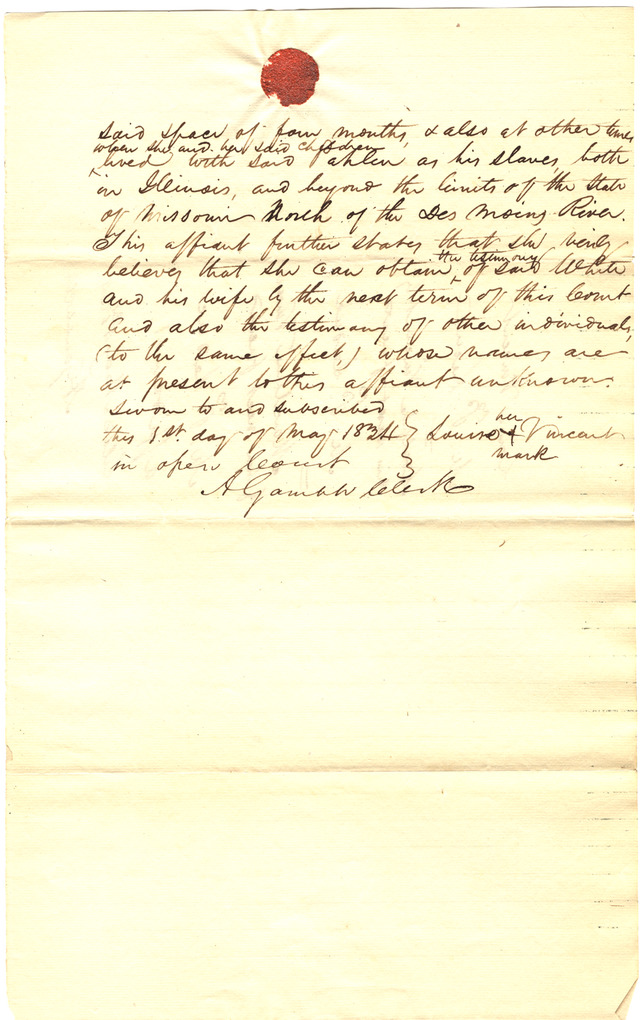 said space of four months, & also at other times
when she and her said children
lived with said ahlen as his slaves, both
in Illinois, and beyond the limits of the State
of Missouri North of the Des Moins River.
This affiant further states that she verily
the testimony
believes that she can obtain of said White
and his wife by the next term of this Court
and also the testimony of other individuals,
(to the same effect,) whose names are
at present to this affiant unknown.
Sworn to and subscribed
this 1st day of May 1834 } Louisa her + Vincent
in open Court mark
A Gamble Clerk